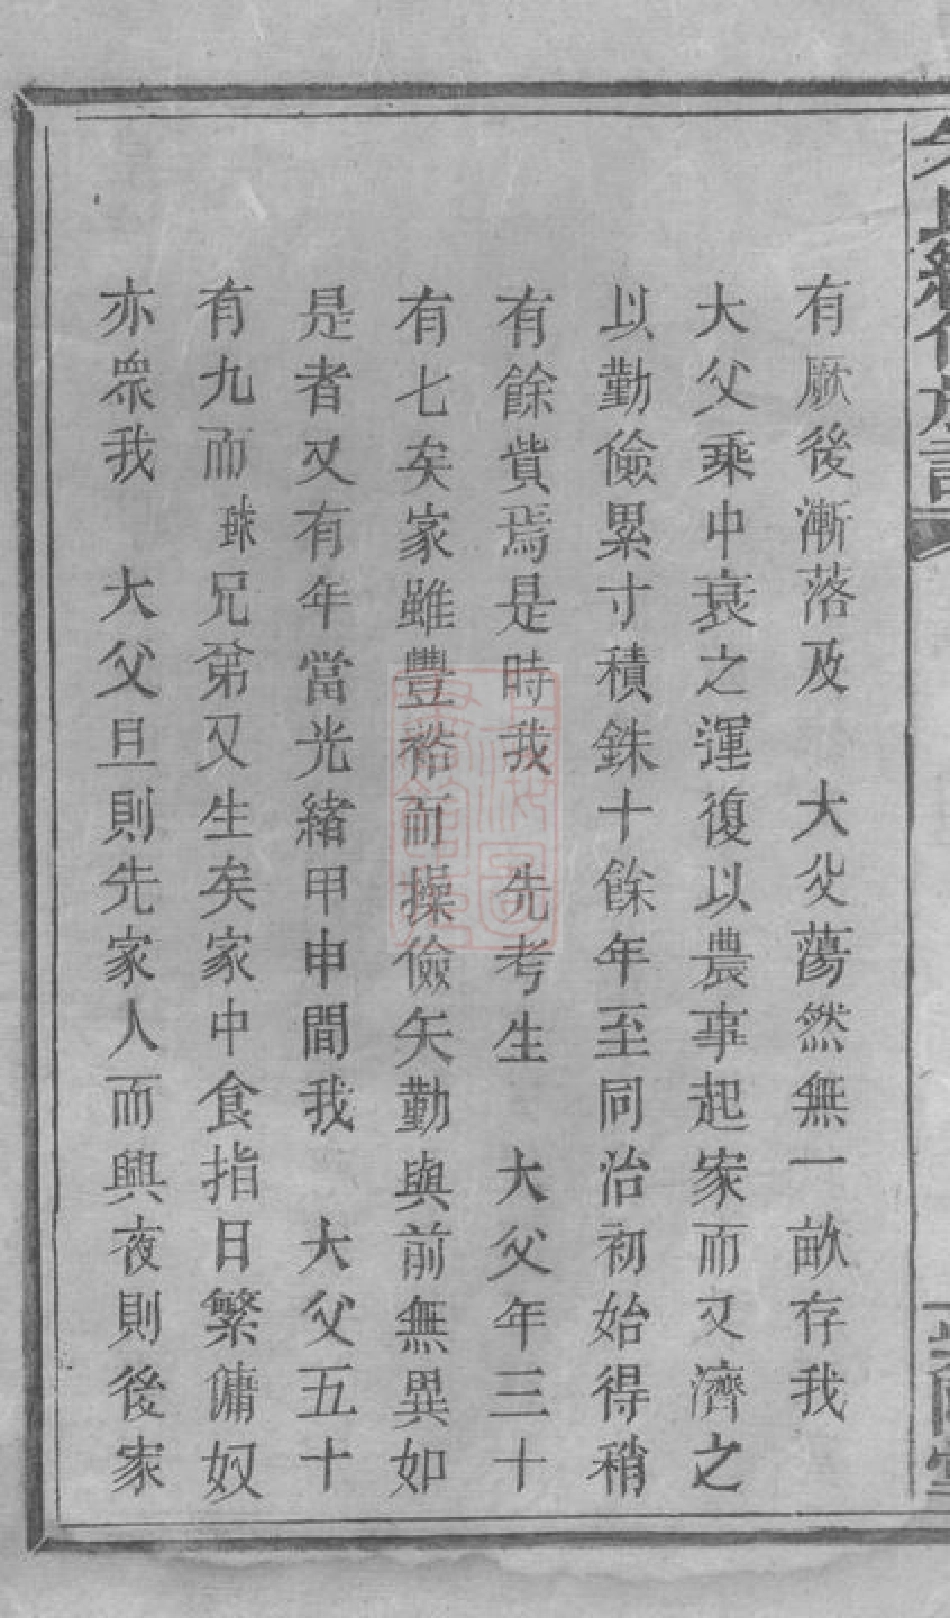 有厥後漸落及　大父蕩然無一畝存我
大父乘中衰之運復以農事起家而又濟之
以勤儉累寸積銖十餘年至同治初始得稍
有餘貲焉是時我　先考生　大父年三十
有七矣家雖豐裕而操儉矢勤與前無異如
是者又有年當光緒甲申間我　大父五十
有九而球兄弟又生矣家中食指日繁傭奴
亦眾我　大父旦則先家人而興夜則後家